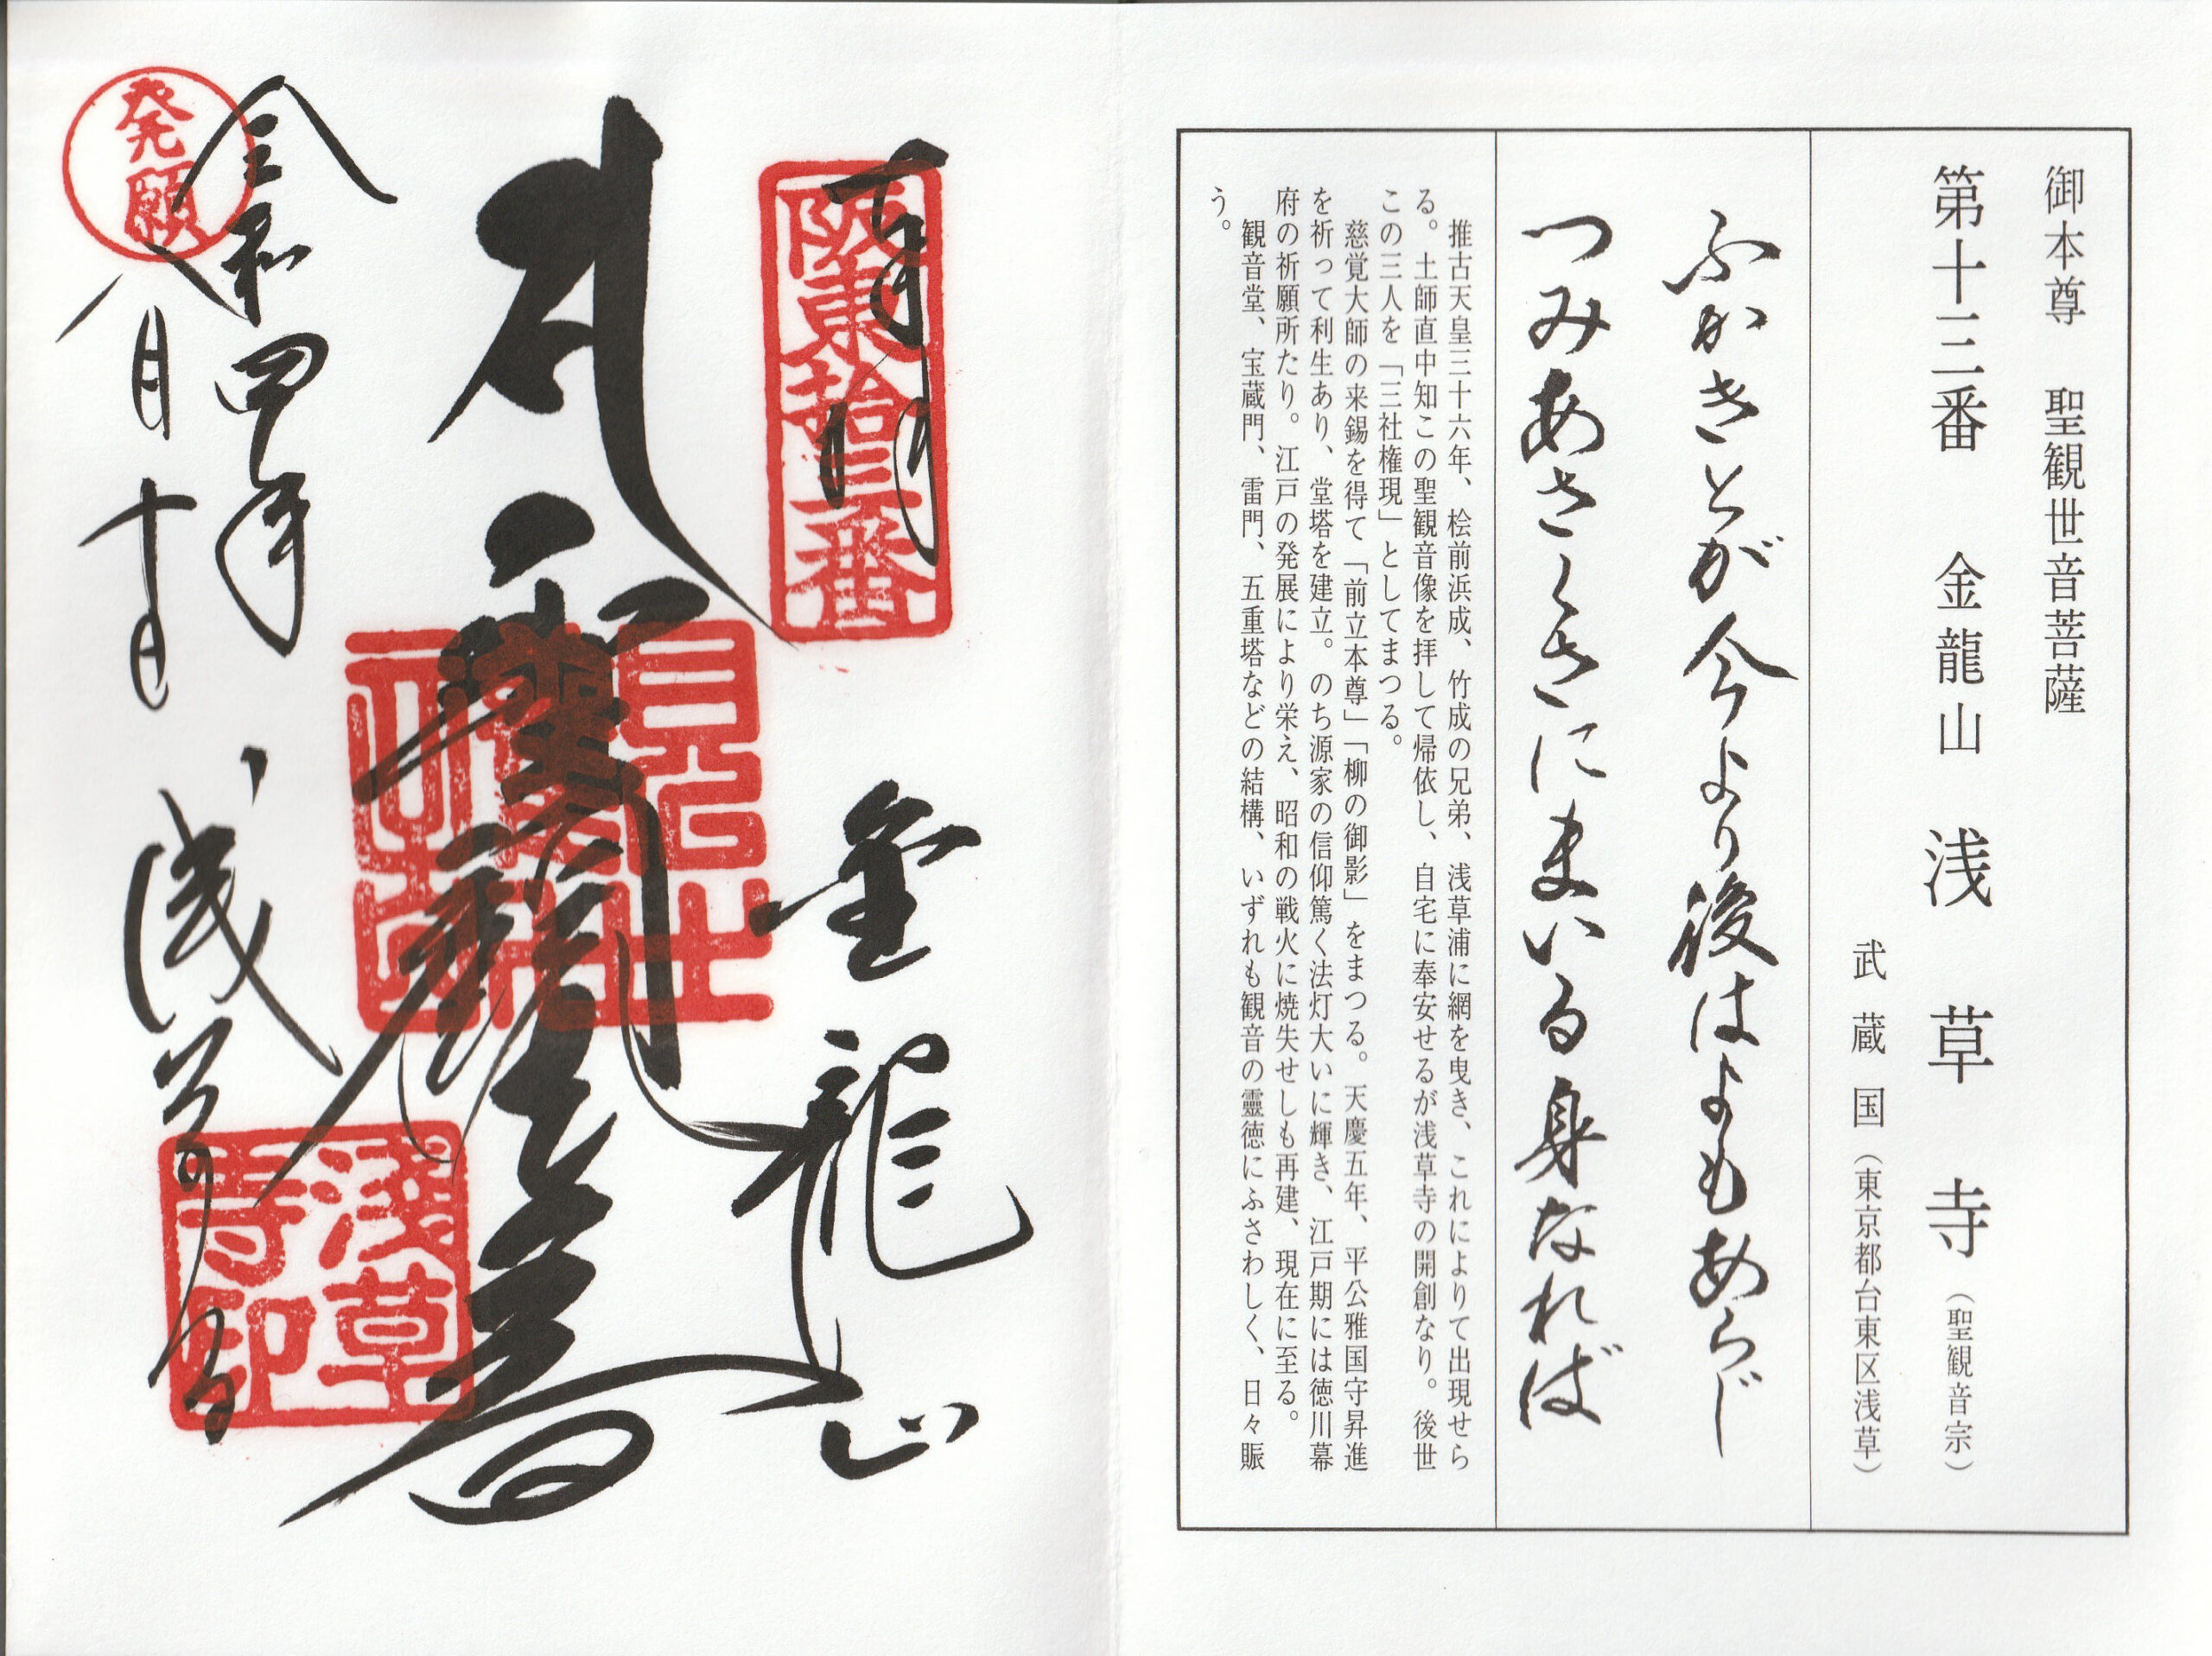 御本尊　聖観世音菩薩
第十三番　金龍山　浅草寺（聖観音宗）
武蔵国（東京都台東区浅草）
ふかきとが今より後はよもあらじ
つみあさくさにまいる身なれば
推古天皇三十六年、桧前浜成、竹成の兄弟、浅草浦に網を曳き、これによりて出現せら
る。土師直中知この聖観音像を拝して帰依し、自宅に奉安せるが浅草寺の開創なり。後世
この三人を「三社権現」としてまつる。
慈覚大師の来錫を得て「前立本尊」「柳の御影」をまつる。天慶五年、平公雅国守昇進
を祈って利生あり、堂塔を建立。のち源家の信仰篤く法灯大いに輝き、江戸期には徳川幕
府の祈願所たり。江戸の発展により栄え、昭和の戦火に焼失せしも再建、現在に至る。
観音堂、宝蔵門、雷門、五重塔などの結構、いずれも観音の靈徳にふさわしく、日々賑
う。
奉拝
阪東拾三番
金龍山
聖観世音
発願
令和四年
八月十日
浅草寺
浅草
寺印